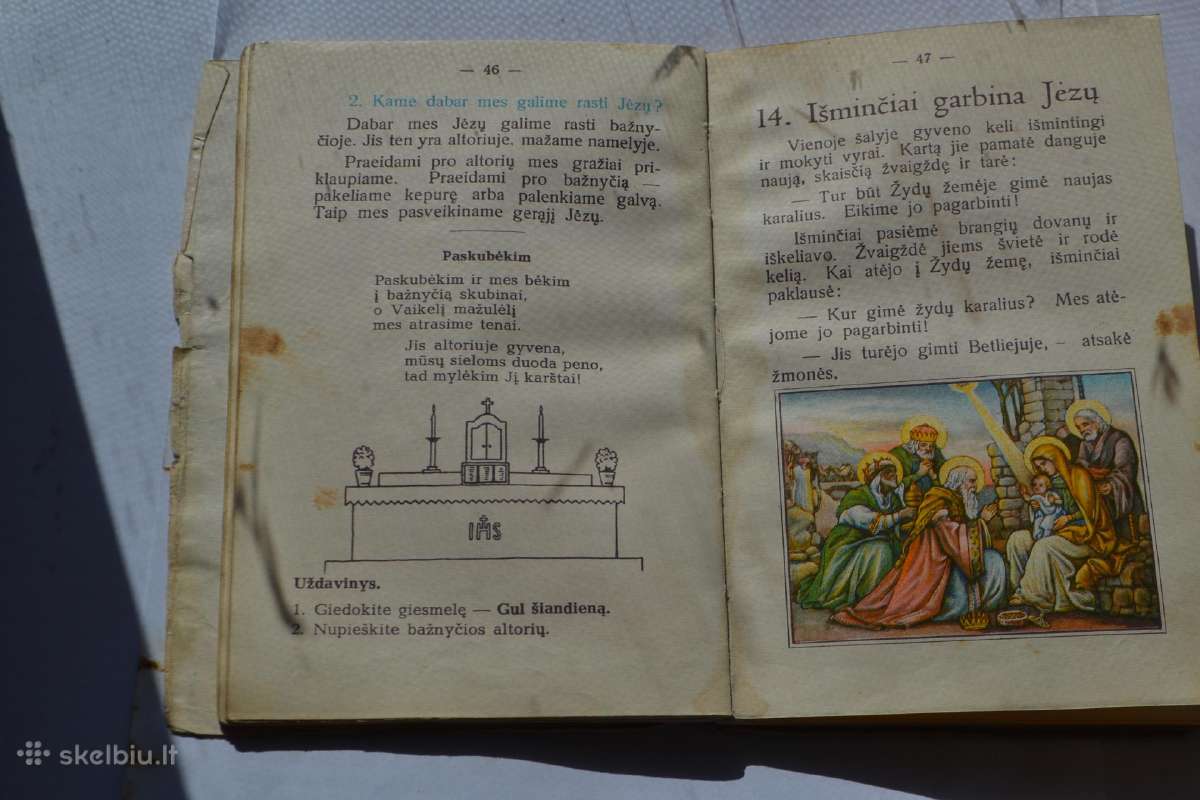 — 46 —
2. Kame dabar mes galime rasti Jėzų?
Dabar mes Jėzų galime rasti bažny-
čioje. Jis ten yra altoriuje, mažame namelyje.
Praeidami pro altorių mes gražiai pri-
klaupiame. Praeidami pro bažnyčią —
pakeliame kepurę arba palenkiame galvą.
Taip mes pasveikiname gerąjį Jėzų.
Paskubėkim
Paskubėkim ir mes bėkim
į bažnyčią skubinai,
o Vaikelį mažulėlį
mes atrasime tenai.
Jis altoriuje gyvena,
mūsų sieloms duoda peno,
tad mylėkim Jį karštai!
IHS
Uždavinys.
1. Giedokite giesmelę — Gul šiandieną.
2. Nupieškite bažnyčios altorių.
— 47 —
14. Išminčiai garbina Jėzų
Vienoje šalyje gyveno keli išmintingi
ir mokyti vyrai. Kartą jie pamatė danguje
naują, skaisčią žvaigždę ir tarė:
— Tur būt Žydų žemėje gimė naujas
karalius. Eikime jo pagarbinti!
Išminčiai pasiėmė brangių dovanų ir
iškeliavo. Žvaigždė jiems švietė ir rodė
kelią. Kai atėjo į Žydų žemę, išminčiai
paklausė:
— Kur gimė žydų karalius? Mes atė-
jome jo pagarbinti!
— Jis turėjo gimti Betliejuje, – atsakė
žmonės.
skelbiu.lt